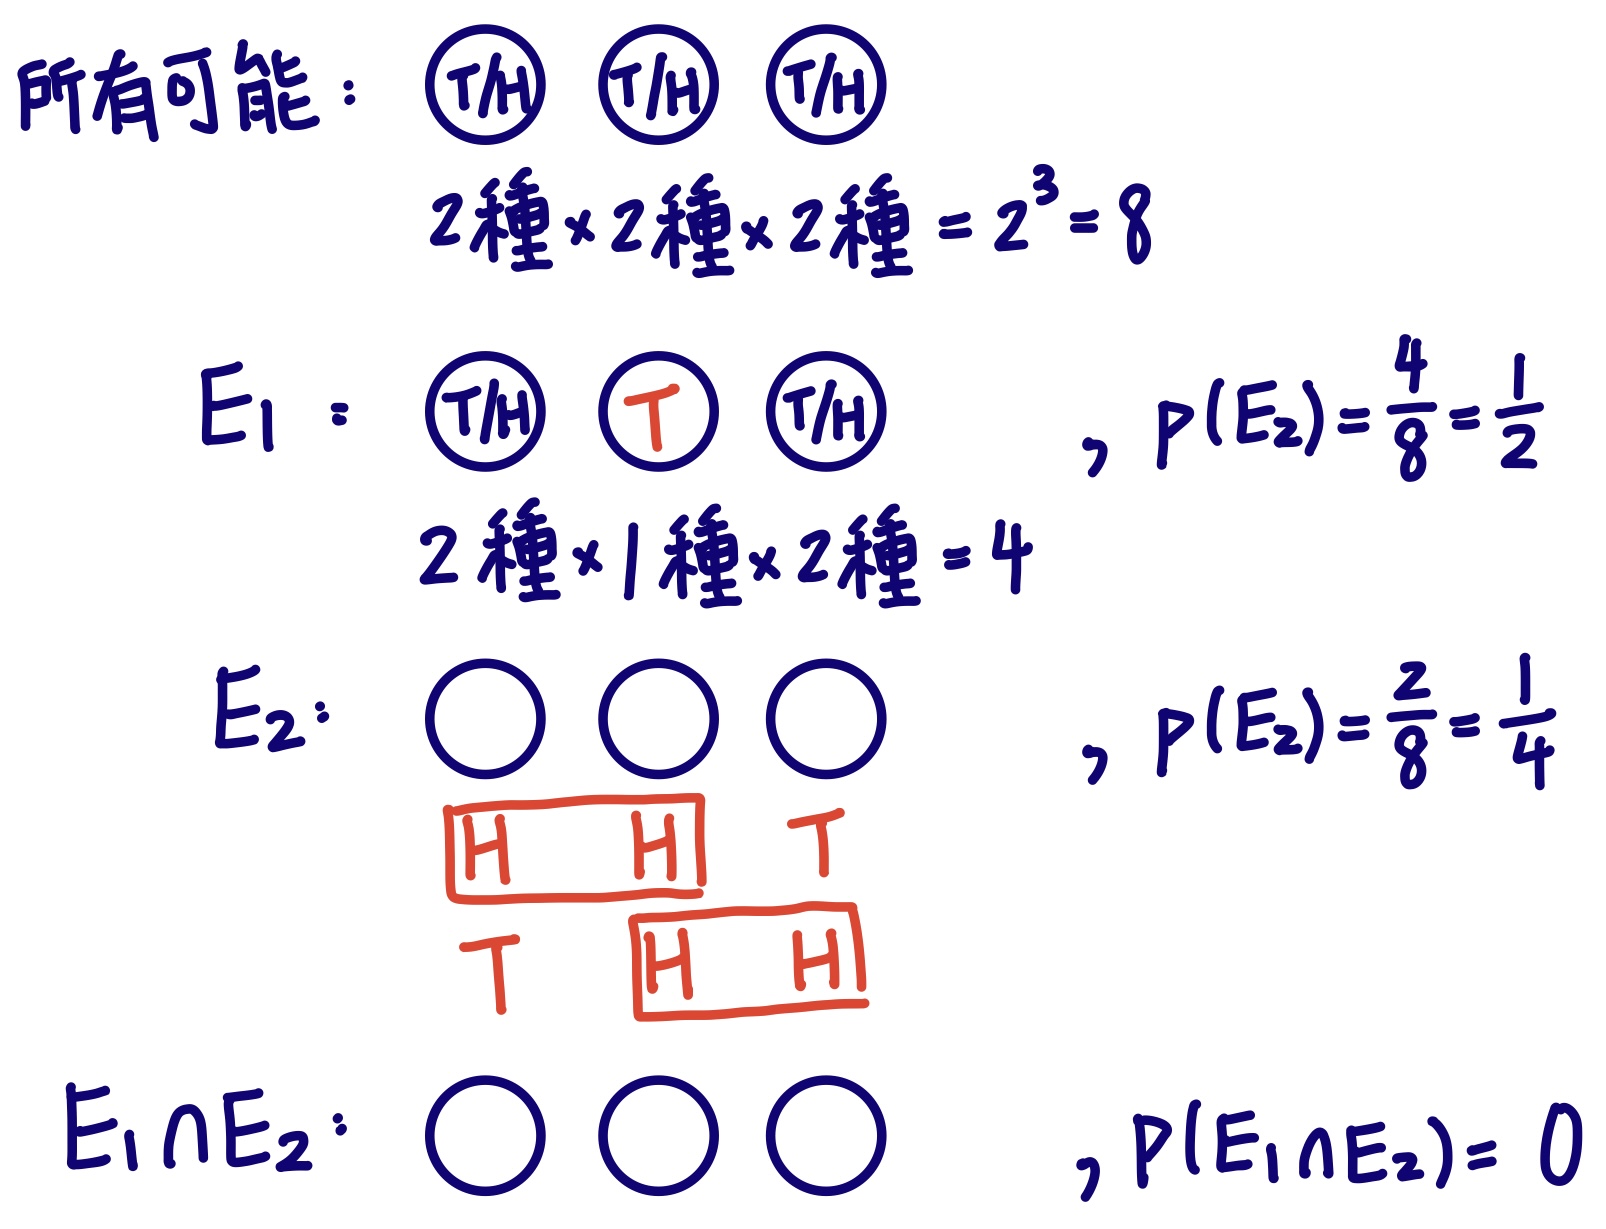 所有可能: T/H T/H T/H
2種×2種×2種=2³=8
E₁: T/H T T/H , P(E₂)=4/8=1/2
2種×1種×2種=4
E₂: , P(E₂)=2/8=1/4
H H T
T H H
E₁∩E₂: , P(E₁∩E₂)=0